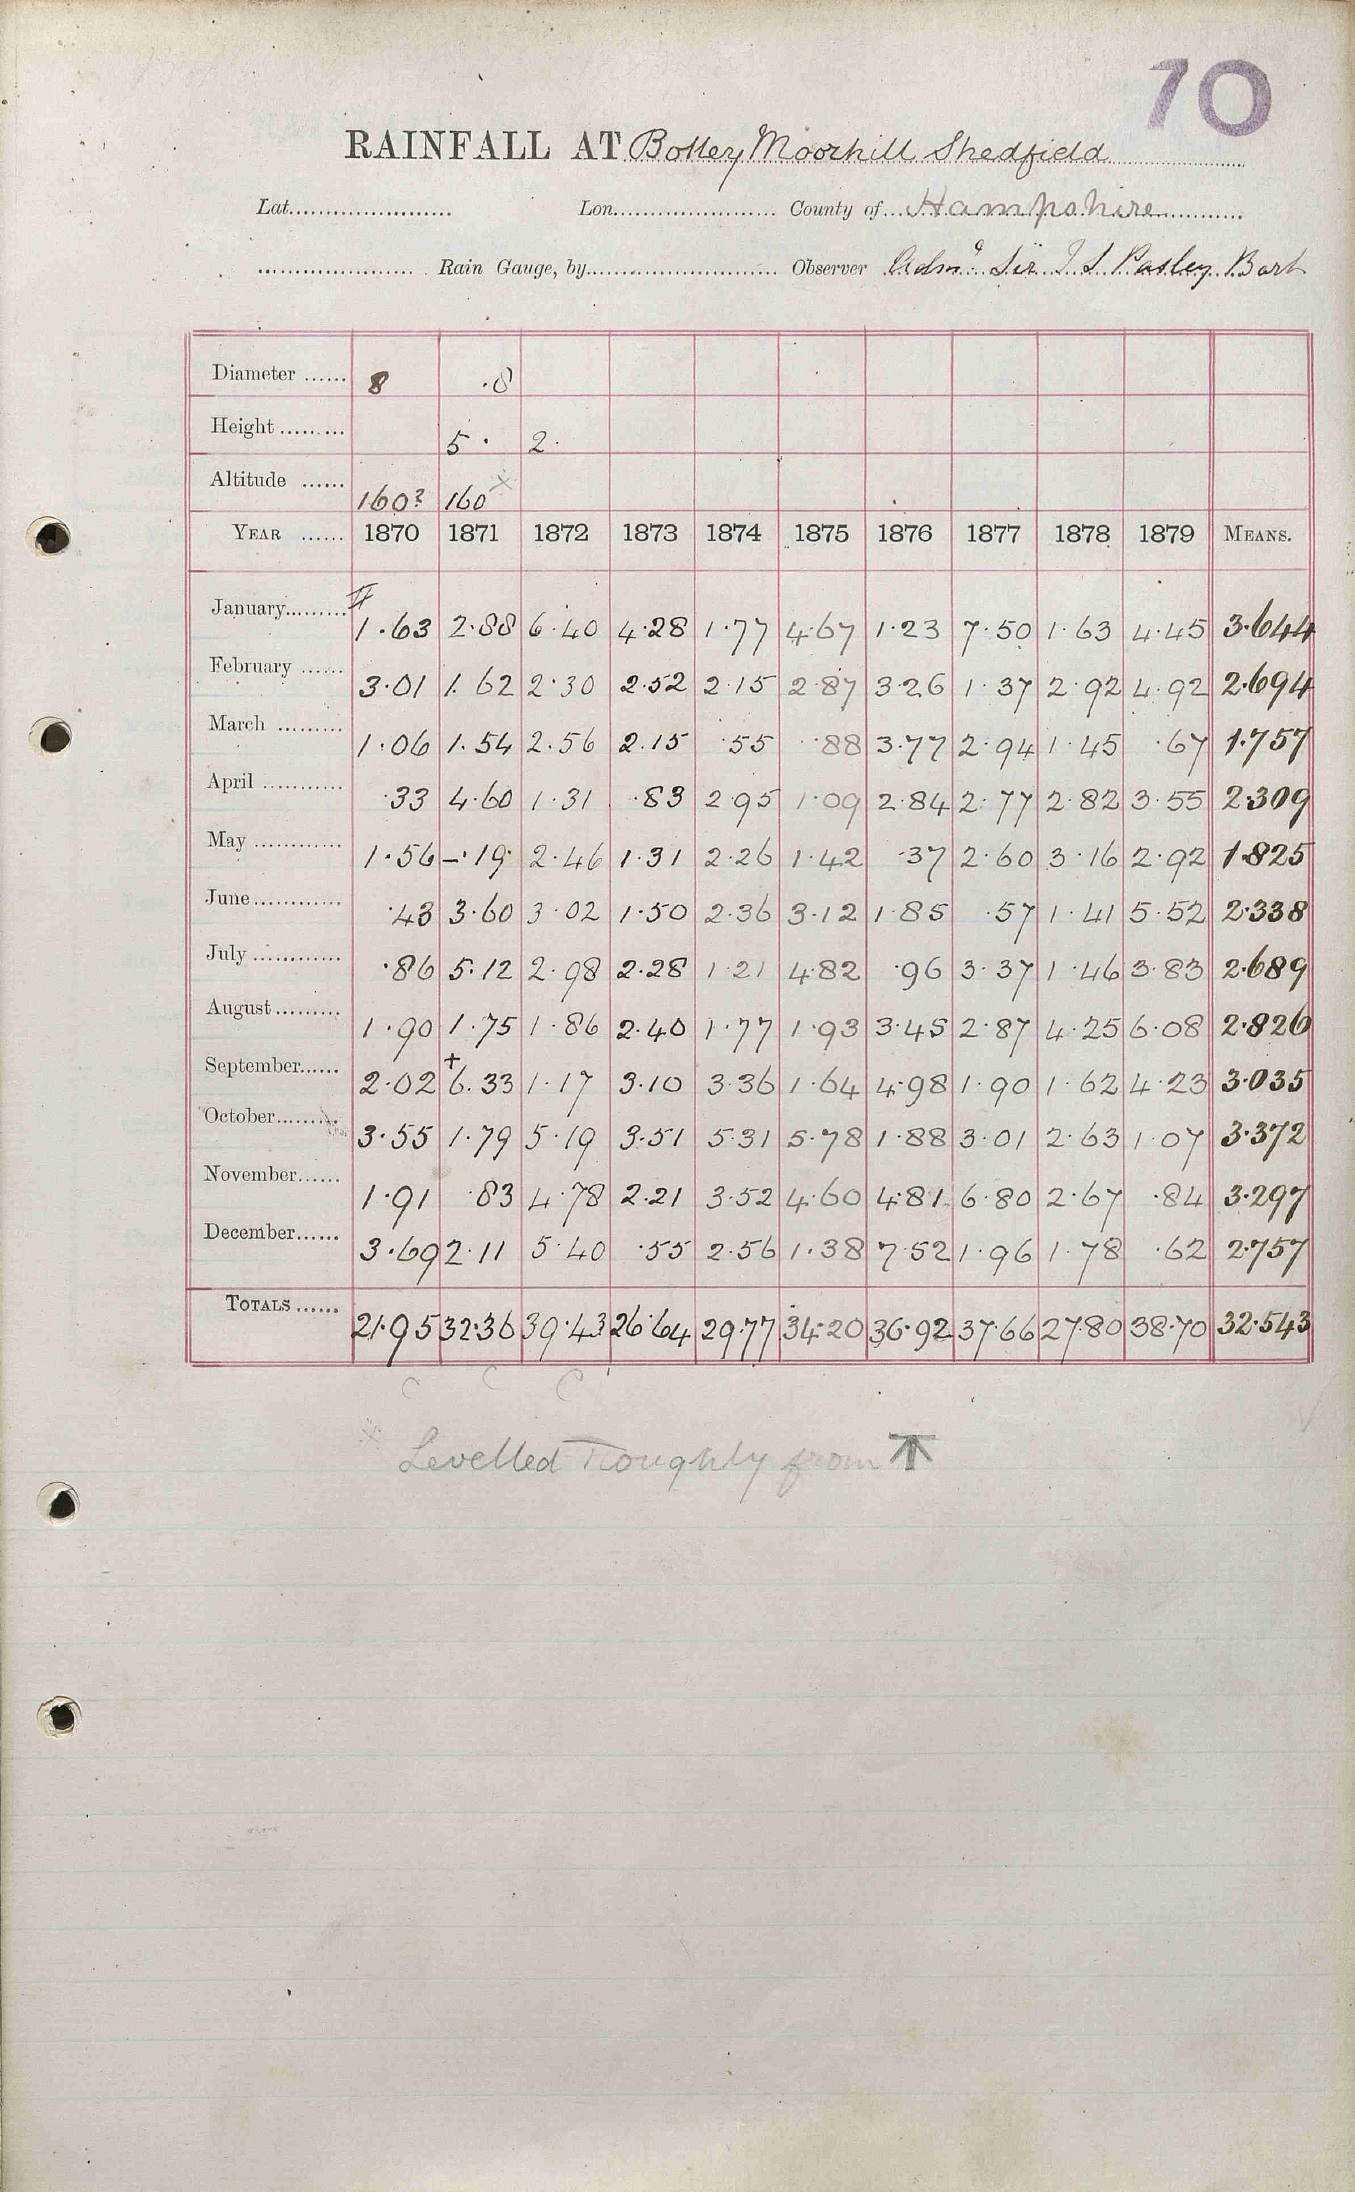 70
RAINFALL AT Botley Moorhill Shedfield
Lat...................... Lon....................... County of Hampshire
...................... Rain Gauge, by........................... Observer Adml Sir T S Pasley Bart
Diameter ...... 8 .8
Height ......... 5. 2.
Altitude ...... 160? 160 x
YEAR ...... 1870 1871 1872 1873 1874 1875 1876 1877 1878 1879 MEANS.
January......... 1.63 2.88 6.40 4.28 1.77 4.67 1.23 7.50 1.63 4.45 3.644
February ...... 3.01 1.62 2.30 2.52 2.15 2.87 3.26 1.37 2.92 4.92 2.694
March ......... 1.06 1.54 2.56 2.15 .55 .88 3.77 2.94 1.45 .67 1.757
April ............ .33 4.60 1.31 .83 2.95 1.09 2.84 2.77 2.82 3.55 2.309
May ............ 1.56 -.19 2.46 1.31 2.26 1.42 .37 2.60 3.16 2.92 1.825
June ............ .43 3.60 3.02 1.50 2.36 3.12 1.85 .57 1.41 5.52 2.338
July ............ .86 5.12 2.98 2.28 1.21 4.82 .96 3.37 1.46 3.83 2.689
August ......... 1.90 1.75 1.86 2.40 1.77 1.93 3.45 2.87 4.25 6.08 2.826
September...... 2.02 +6.33 1.17 3.10 3.36 1.64 4.98 1.90 1.62 4.23 3.035
October......... 3.55 1.79 5.19 3.51 5.31 5.78 1.88 3.01 2.63 1.07 3.372
November...... 1.91 .83 4.78 2.21 3.52 4.60 4.81 6.80 2.67 .84 3.297
December...... 3.69 2.11 5.40 .55 2.56 1.38 7.52 1.96 1.78 .62 2.757
TOTALS ...... 21.95 32.36 39.43 26.64 29.77 34.20 36.92 37.66 27.80 38.70 32.543
C C C
x Levelled roughly from